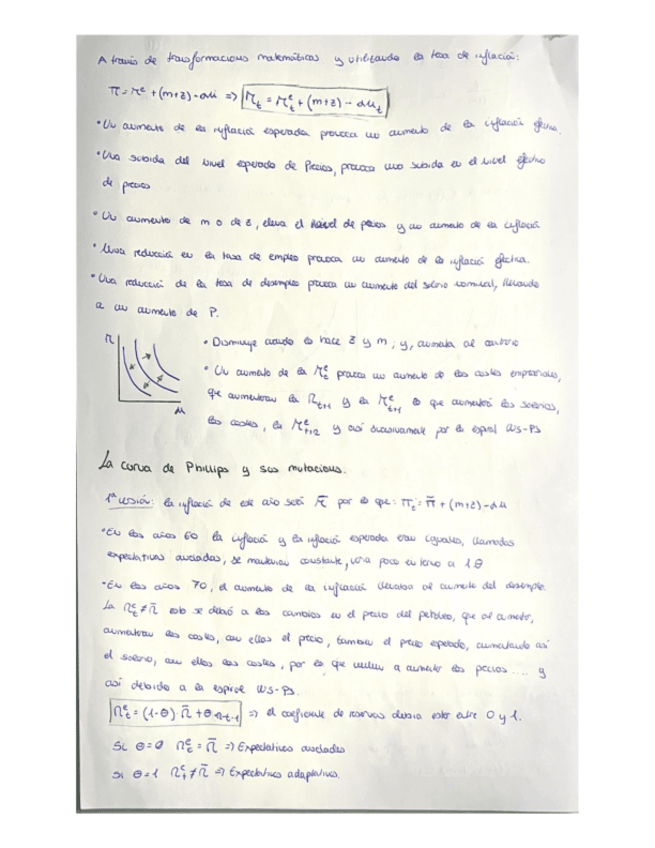 A través de transformaciones matemáticas y utilizando la tasa de inflación:
π = π^e + (m+z) - αu => π_t = π_t^e + (m+z) - αu_t
• Un aumento de la inflación esperada provoca un aumento de la inflación efectiva.
• Una subida del nivel esperado de Precios, provoca una subida en el nivel efectivo
de precios
• Un aumento de m o de z, eleva el nivel de precios y un aumento de la inflación
• Una reducción en la tasa de empleo provoca un aumento de la inflación efectiva.
• Una reducción de la tasa de desempleo provoca un aumento del salario nominal, llevando
a un aumento de P.
π
• Disminuye cuando lo hace z y m, y, aumenta al contrario
• Un aumento de la π_t^e provoca un aumento de los costes empresariales,
que aumentaran la π_t+1 y la π^e_t+1 lo que aumentará los salarios,
los costes, la π^e_t+2 y así sucesivamente por la espiral WS-PS
u
La curva de Phillips y sus mutaciones.
1ª versión: la inflación de este año será π̄ por lo que: π_t = π̄ + (m+z) - αu
• En los años 60 la inflación y la inflación esperada eran iguales, llamadas
expectativas ancladas, se mantenían constante, poco en torno a
• En los años 70, el aumento de la inflación llevaba al aumento del desempleo.
La π_t^e ≠ π̄ esto se debió a los cambios en el precio del petróleo, que al aumentar,
aumentaron los costes, con ellos el precio, también el precio esperado, aumentando así
el salario, con ellos los costes, por lo que vuelven a aumentar los precios .... y
así debido a la espiral WS-PS.
π_t^e = (1-θ)·π̄ + θ·π_t-1 => el coeficiente de debía estar entre 0 y 1.
Si θ=0 π_t^e = π̄ => Expectativas ancladas
Si θ=1 π_t^e ≠ π̄ => Expectativas adaptativas.